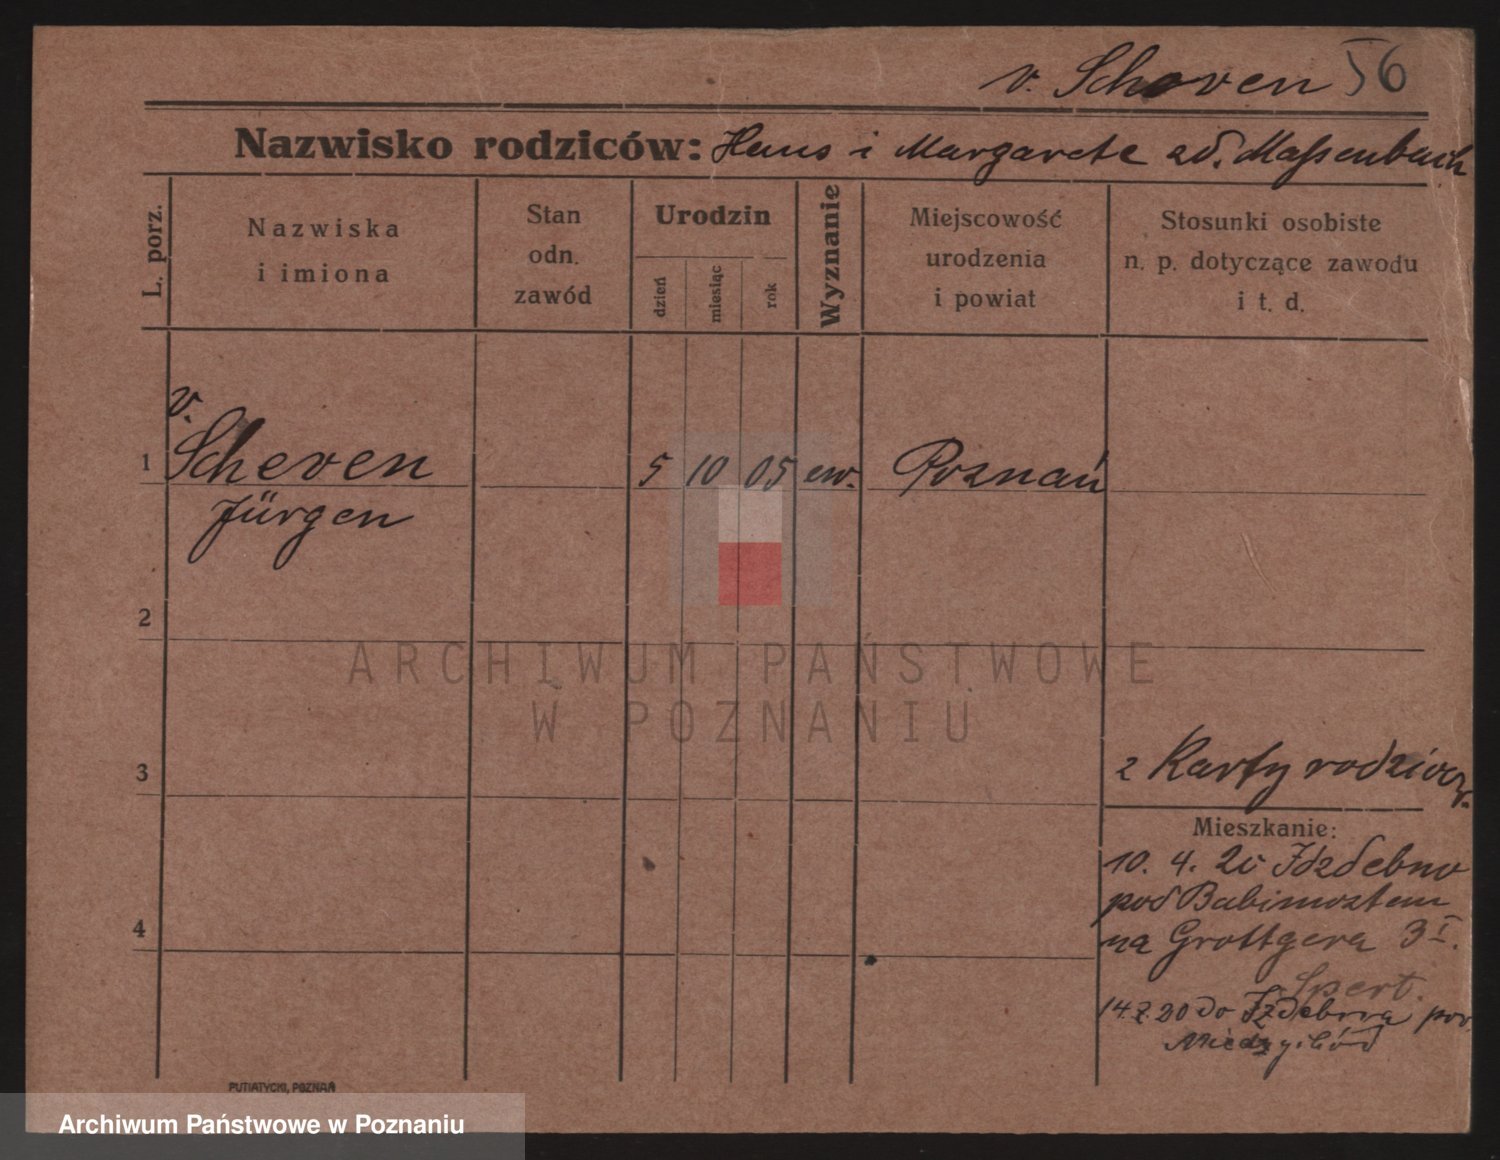 v. Scheven 56
Nazwisko rodziców: Hans i Margarete zd. Massenbach
L. porz.
Nazwiska
i imiona
Stan
odn.
zawód
Urodzin
dzień
miesiąc
rok
Wyznanie
Miejscowość
urodzenia
i powiat
Stosunki osobiste
n. p. dotyczące zawodu
i t. d.
v.
1 Scheven 5 10 05 ew. Poznań
Jürgen
2
ARCHIWUM PAŃSTWOWE
W POZNANIU
3
z Karty rodzicow.
Mieszkanie:
10. 4. 20 Izdebno
pod Babimostem
4
na Grottgera 3 I.
Spert.
14.7.20 do Izdebna pow.
Międzychód
PUTIATYCKI, POZNAŃ
Archiwum Państwowe w Poznaniu